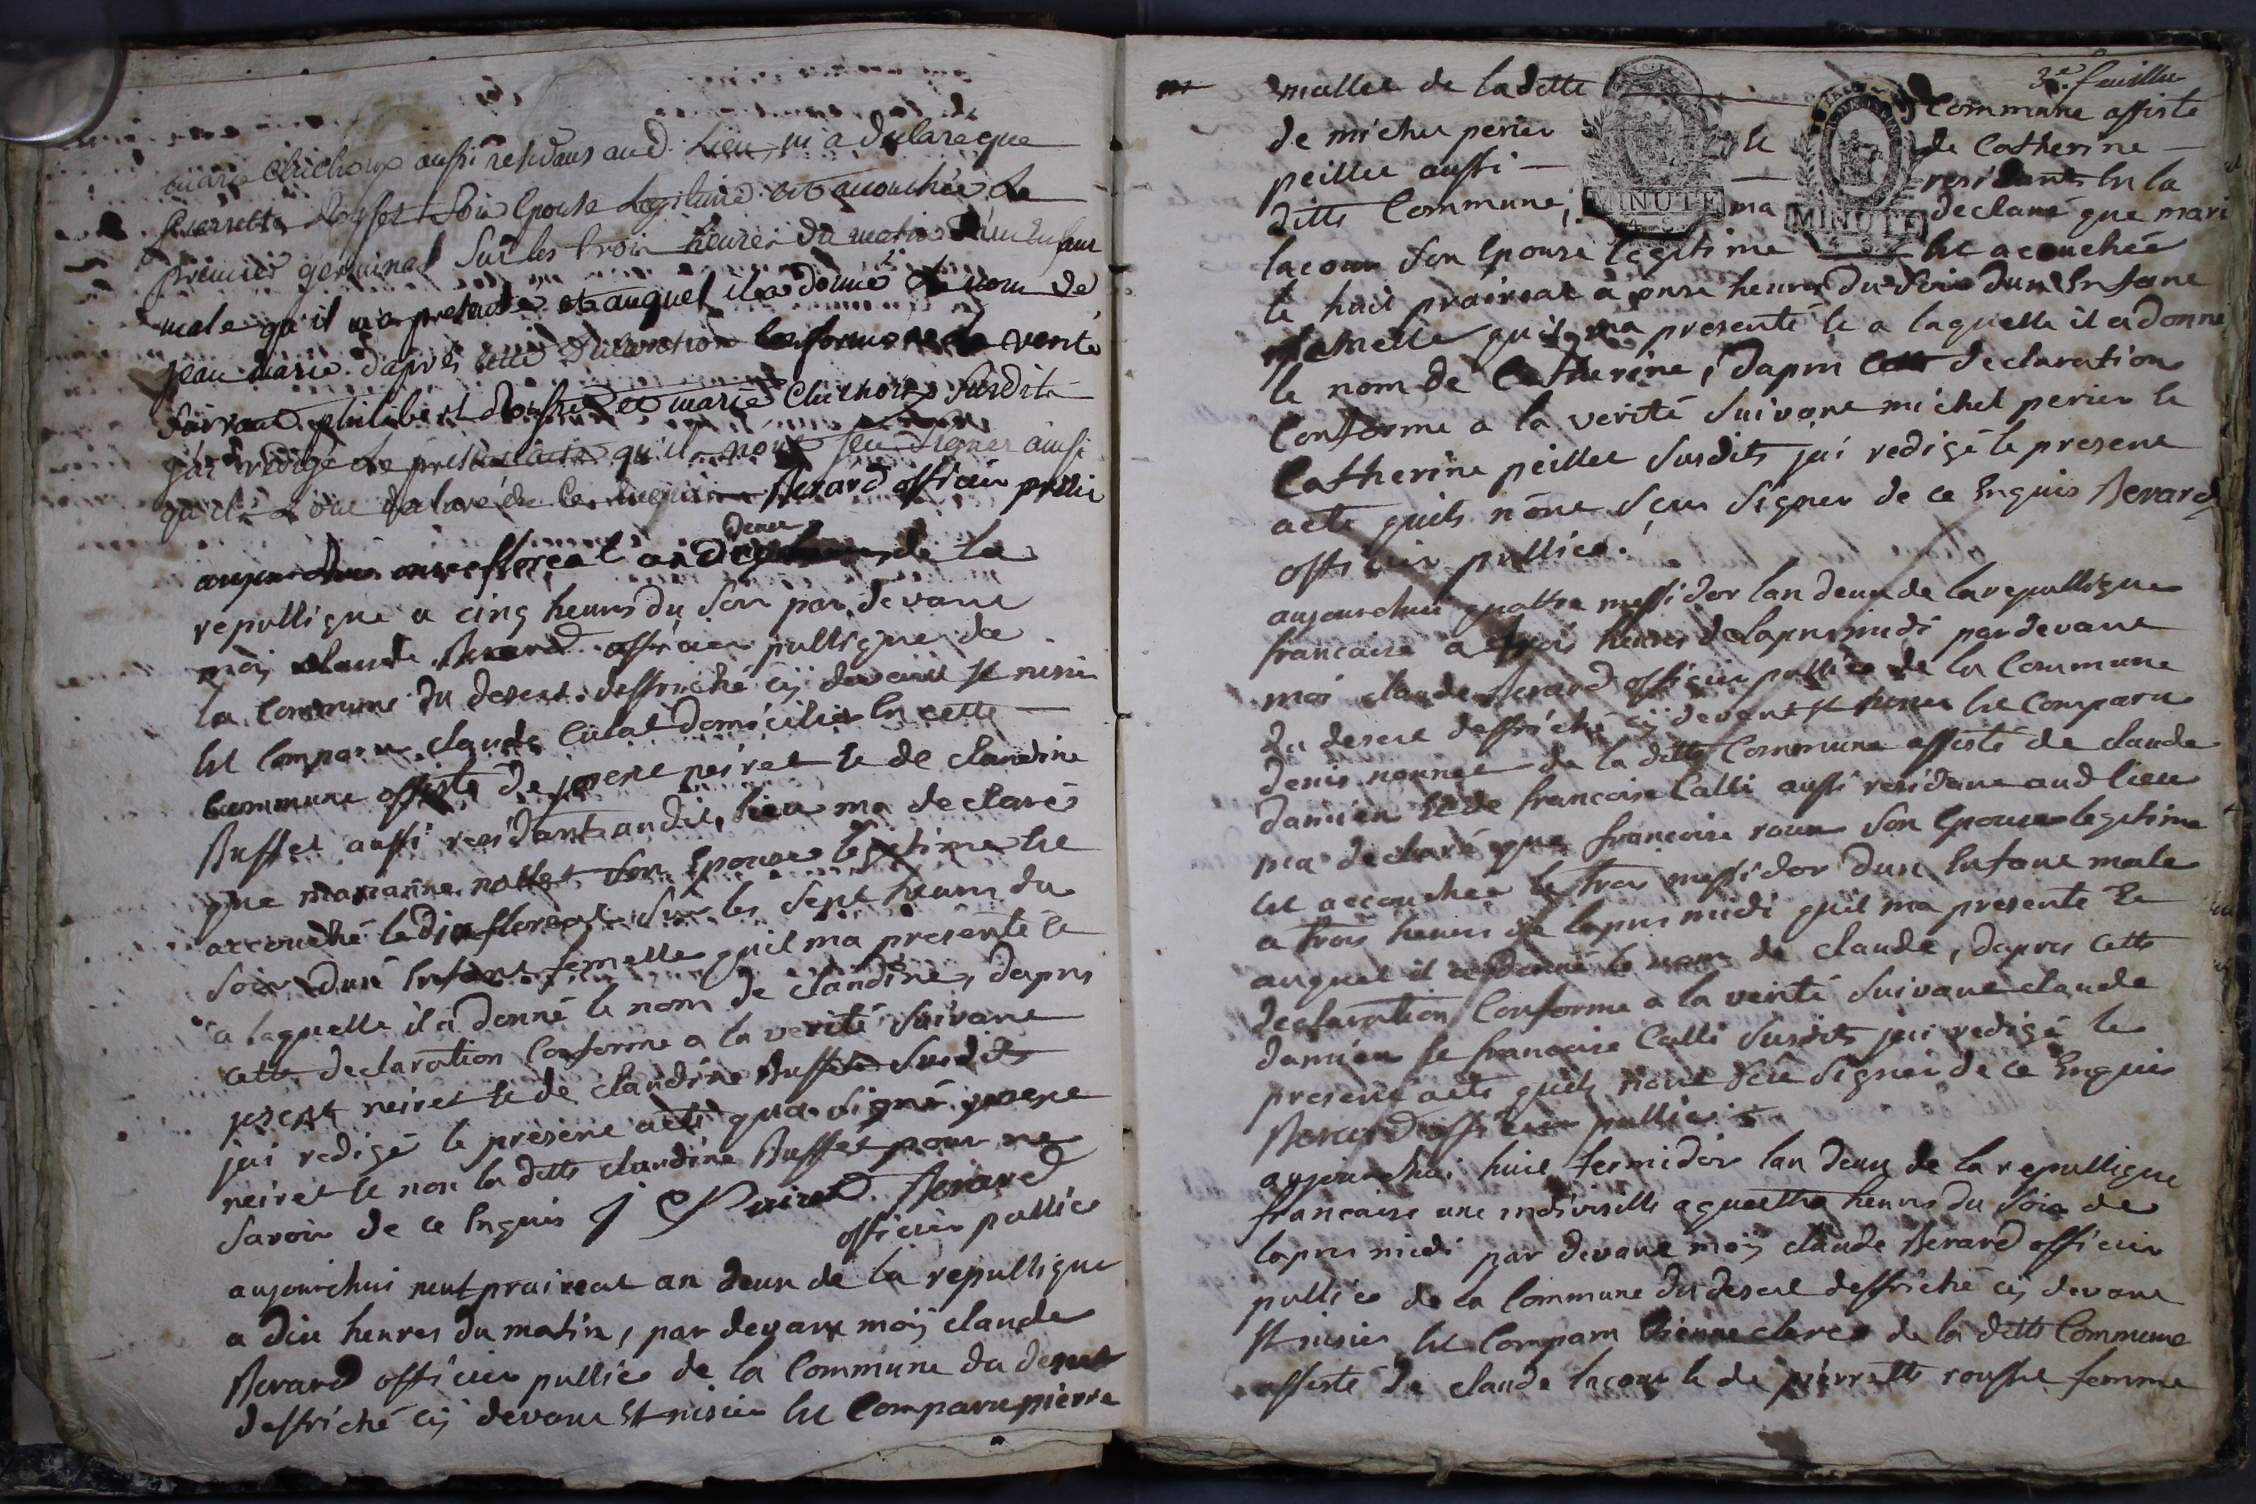 marie Chichoux aussi residans aud. Lieu, m'a declare que
pierrette Rousset Son Epouse Legitime est acouchée Le
premier germinal Sur les trois heures du matin d'un Enfant
male qu'il m'a presenté et auquel il a donné le nom de
jean marie. d'après cette declaration conforme a la verité
suivant philibert et marie Chichoux Susdits
j'ai redigé Le present acte qu'ils n'ont seu Signer ainsi
qu'ils L'ont declaré de ce enquis Berard officier pullic
aujourdhui onze floreal an deux de la
republique a cinq heures du Soir par devant
moÿ claude Berard officier pullique de
la Commune du desert deffriché cÿ devant St nisier
Est Comparu claude Culat domicilié En cette
Commune assisté de josept neiret Et de claudine
Buffet aussi residants audit lieu ma declaré
que marianne nollet Son Epouse legitime Est
accouché le dix floreal Sur les Sept heures du
Soir dun Enfant femelle quil ma presenté Et
a laquelle il a donné le nom de claudine, dapres
cette declaration Conforme a la verité Suivant
josept neiret Et de claudine Buffet Susdits
jai redigé le present acte qua signé josept
neiret Et non la ditte claudine Buffet pour ne
Savoir de ce Enquis J Neiret Berard
officier pullic
aujourdhui neuf praireal an deux de la republique
a dix heures du matin, par devant moÿ claude
Berard officier pullic de la Commune du desert
deffriché cÿ devant St nisier Est Comparu pierre
3e. feuillet
mallet de ladette Commune assisté
de michel perier Et de Catherine
peillet aussi residants En la
ditte Commune, ma declaré que mari
lacour Son Epouse legitime Est acouchée
le huit praireal a onse heures du Soir dun Enfant
femelle quil ma presenté Et a laquelle il a donné
le nom de Catherine, dapres cette declaration
Conforme a la verité Suivant michel perier Et
Catherine peillet Susdits jai redigé le present
acte quils nont Sçu Signer de ce Enquis Berard
officier pullic.
aujourdhui quattre messidor lan deux de la republique
francaise a trois heures de lapres midi par devant
moi claude Berard officier pullic de la Commune
du desert deffriché cÿ devant St nisier Est Comparu
denis nonnet de la ditte Commune assisté de claude
damien Et de francoise Calli aussi residant aud lieu
ma declaré que francoise roux Son Epouse legitime
Est accouchée le trois messidor dun Enfant male
a trois heures de lapres midi quil ma presenté Et
auquel il a donné le nom de claude, dapres cette
declaration Conforme a la verité Suivant claude
damien Et francoise Calli Susdits jai redigé le
present acte quils nont Seu Signer de ce Enquis
Berard officier pullic
aujourdhui huit termidor lan deux de la republique
francaise une indivisille a quattre heures du Soir de
lapres midi par devant moÿ claude Berard officier
pullic de la Commune du desert deffriché cÿ devant
St nisier Est Comparu Etienne clerc de la ditte Commune
assisté de claude lacour Et de pierrette rousset femme
MINUTE
MINUTE